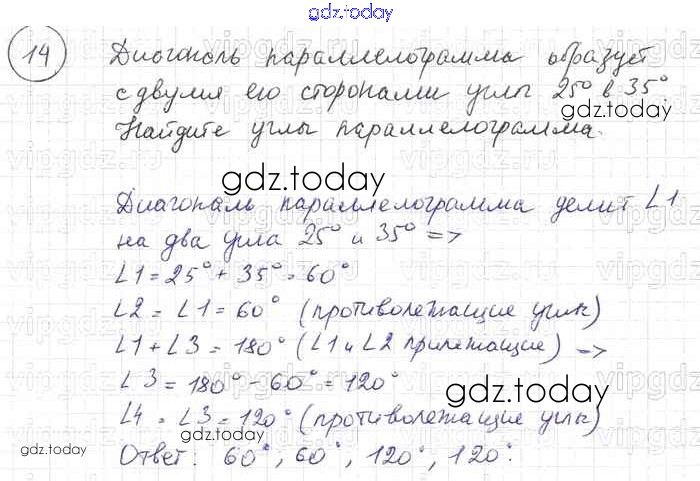 gdz.today
14 Диагональ параллелограмма образует
с двумя его сторонами углы 25° и 35°
gdz.today
Найдите углы параллелограмма.
gdz.today
Диагональ параллелограмма делит ∠1
на два угла 25° и 35° =>
∠1 = 25° + 35° = 60°
∠2 = ∠1 = 60° (противолежащие углы)
∠1 + ∠3 = 180° (∠1 и ∠2 прилежащие) =>
∠3 = 180° - 60° = 120°
gdz.today
∠4 = ∠3 = 120° (противолежащие углы)
gdz.today
gdz.today
Ответ: 60°, 60°, 120°, 120°.